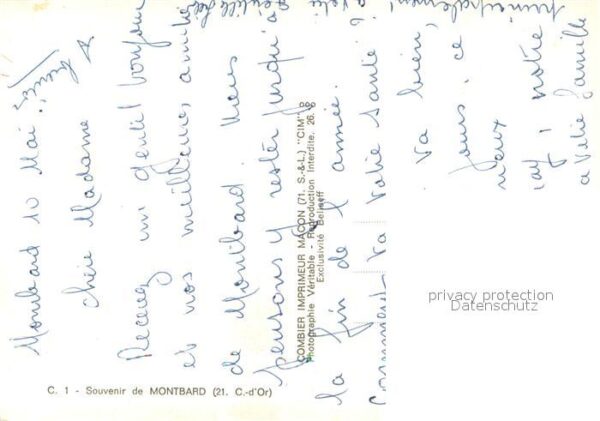 Montbard 10 Mai
Chère Madame
Recevez un gentil bonjour
et nos meilleures amitiés
de Montbard. Nous
pensons y rester jusqu'à
la fin de l'année.
Comment va votre santé ?
va bien,
jours, ce
vieux
à votre famille
principalement
C. 1 - Souvenir de MONTBARD (21. C.-d'Or)
COMBIER IMPRIMEUR MACON (71. S.-&-L.) "CIM"
Photographie Véritable - Reproduction Interdite.
Exclusivité
privacy protection
Datenschutz